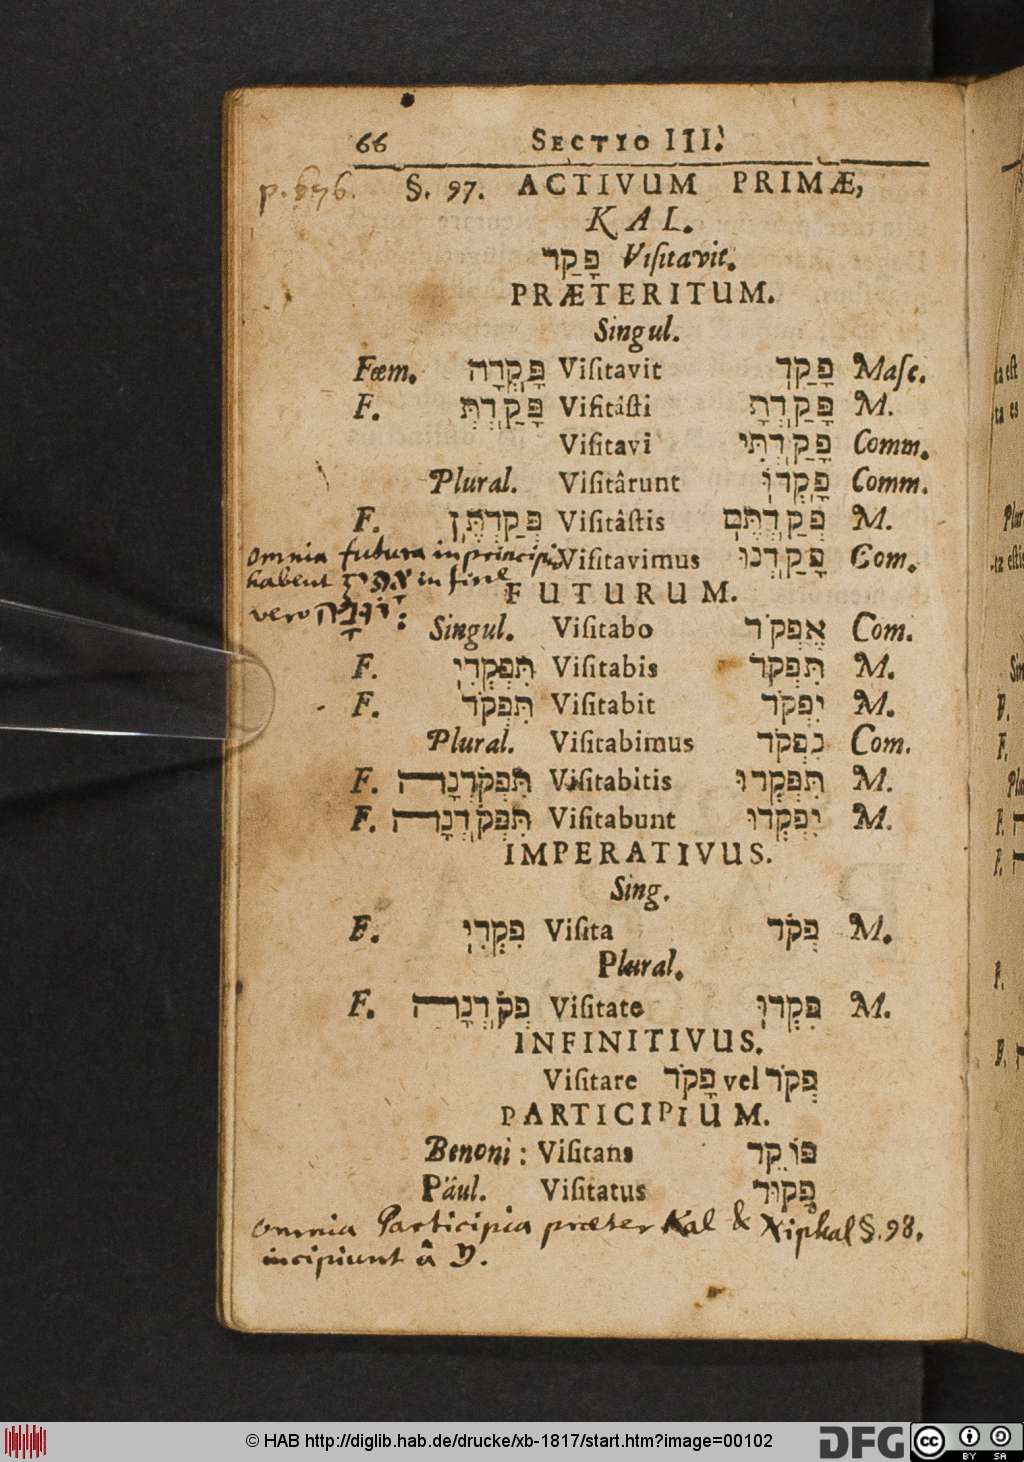 66 SECTIO III.
p. 676. §. 97. ACTIVUM PRIMÆ,
KAL.
פָּקַד Viſitavit.
PRÆTERITUM.
Singul.
Fœm. פָּקְדָה Viſitavit פָּקַד Maſc.
F. פָּקַדְתְּ Viſitâſti פָּקַדְתָּ M.
Viſitavi פָּקַדְתִּי Comm.
Plural. Viſitârunt פָּקְדוּ Comm.
F. פְּקַדְתֶּן Viſitâſtis פְּקַדְתֶּם M.
Viſitavimus פָּקַדְנוּ Com.
Omnia futura in principio
habent in fine
vero
FUTURUM.
Singul. Viſitabo אֶפְקֹד Com.
F. תִּפְקְדִי Viſitabis תִּפְקֹד M.
F. תִּפְקֹד Viſitabit יִפְקֹד M.
Plural. Viſitabimus נִפְקֹד Com.
F. תִּפְקֹדְנָה Viſitabitis תִּפְקְדוּ M.
F. תִּפְקֹדְנָה Viſitabunt יִפְקְדוּ M.
IMPERATIVUS.
Sing.
F. פִּקְדִי Viſita פְּקֹד M.
Plural.
F. פְּקֹדְנָה Viſitate פִּקְדוּ M.
INFINITIVUS.
Viſitare פָּקֹד vel פְּקֹד
PARTICIPIUM.
Benoni: Viſitans פּוֹקֵד
Päul. Viſitatus פָּקוּד
Omnia Participia præter Kal & Niphal §. 98.
incipiunt â מ.
© HAB http://diglib.hab.de/drucke/xb-1817/start.htm?image=00102
DFG
cc BY SA